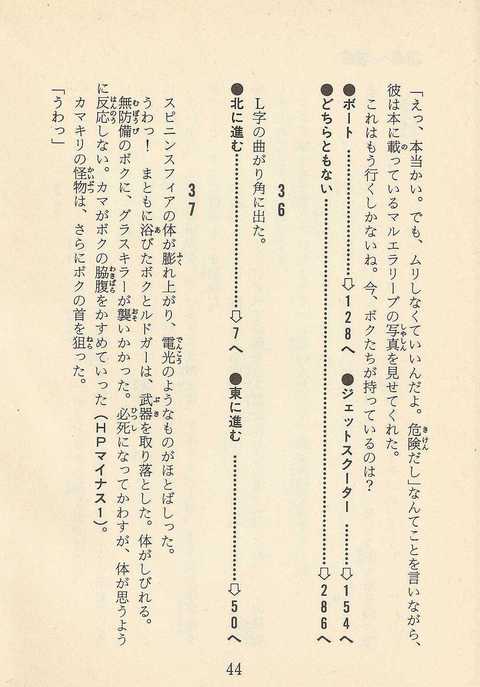 「えっ、本当かい。でも、ムリしなくていいんだよ。危険だし」なんてことを言いながら、
彼は本に載っているマルエラリーブの写真を見せてくれた。
これはもう行くしかないね。今、ボクたちが持っているのは？
●ボート……………⇨128へ　●ジェットスクーター……⇨154へ
●どちらともない……………………………………⇨286へ
36
L字の曲がり角に出た。
●北に進む……………………⇨7へ　●東に進む……………………⇨50へ
37
スピニンスフィアの体が膨れ上がり、電光のようなものがほとばしった。
うわっ！　まともに浴びたボクとルドガーは、武器を取り落とした。体がしびれる。
無防備のボクに、グラスキラーが襲いかかった。必死になってかわすが、体が思うよう
に反応しない。カマがボクの脇腹をかすめていった（HPマイナス1）。
カマキリの怪物は、さらにボクの首を狙った。
「うわっ」
44